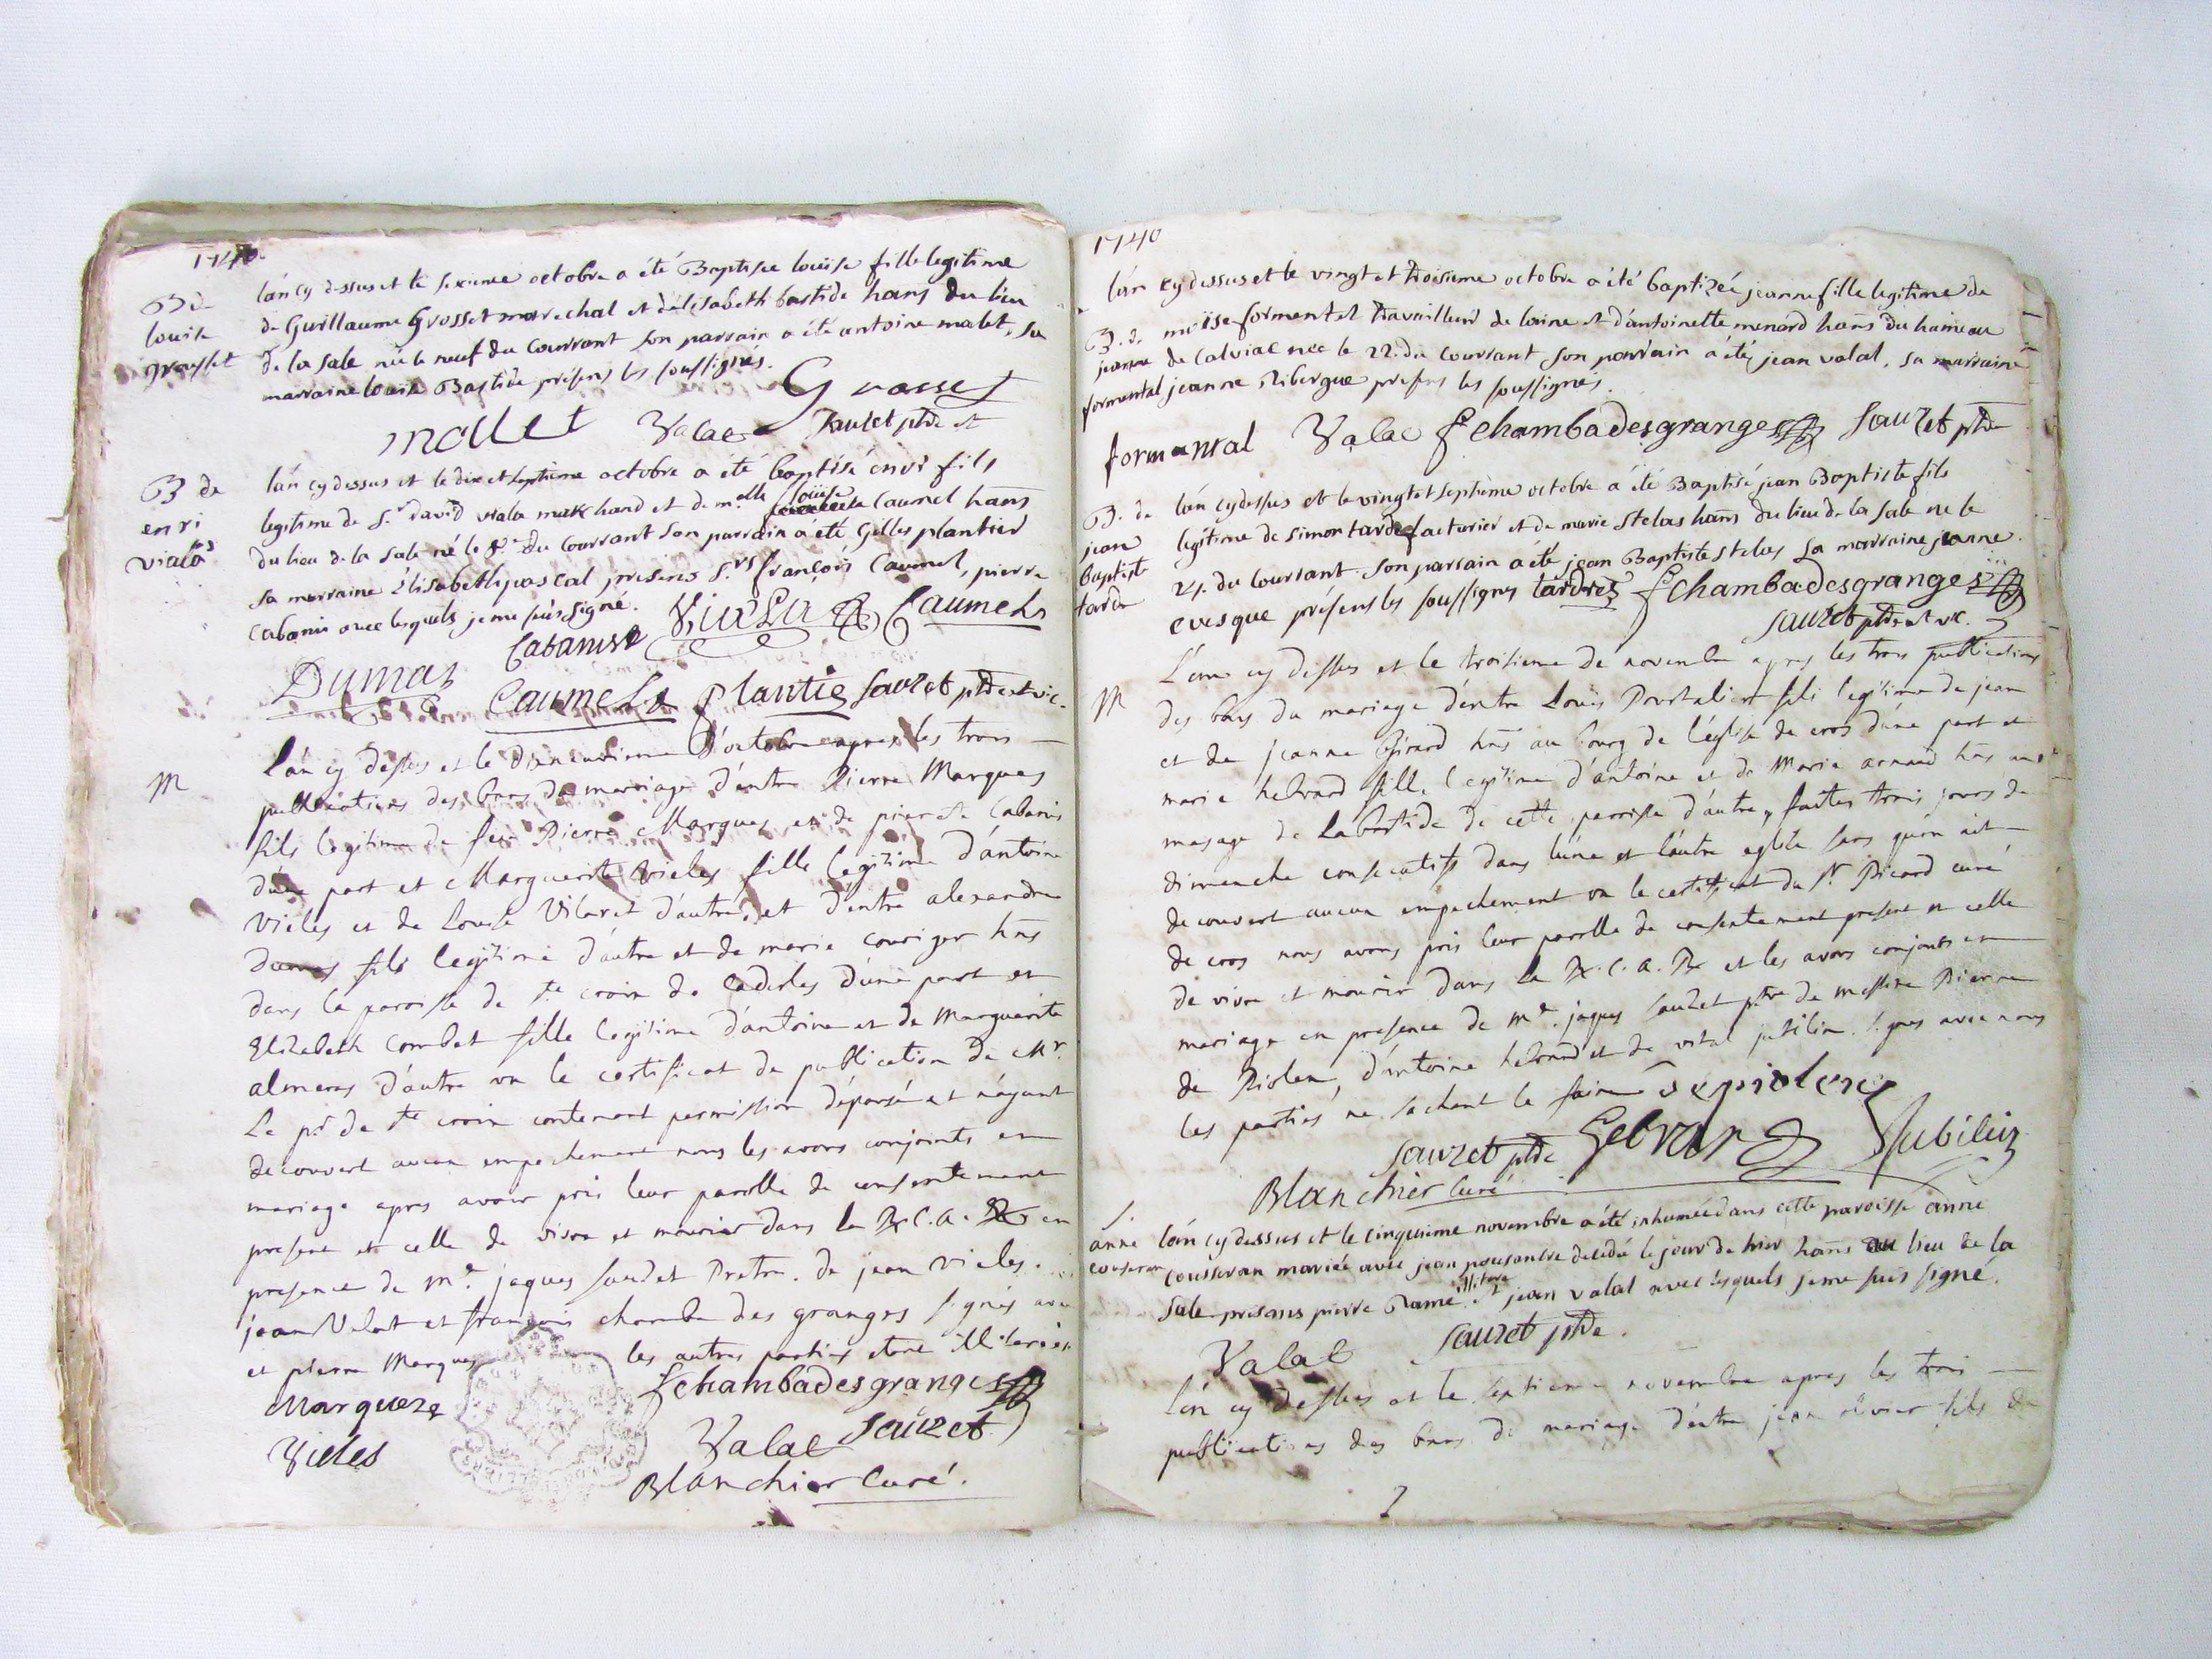 1740
B de
louise
grousset
lán cy dessus et le sesieme octobre a été Baptisee louïse fille legitime
de Guillaume Grosset marechal et d'elisabeth bastide hans du lieu
de la sale née le neuf du Courrant son parrain a été antoine malet, sa
marraine louise Bastide présens les soussignés.
Grosset
mallet Valat Sauzet ptre et
B de
enri
vialas
lán cy dessus et le dix et septieme octobre a été baptisé enri fils
legitime de Sr. david viala marchand et de m.elle louïse Caumel hans
du lieu de la sale né le 8e du Courrant son parrain a été Gilles plantier
sa marraine Elisabeth pascal présens Srs françois Caumel, pierre
Cabanis avec lesquels je me suis signé.
Cabanis Viala Caumels
Dumas Caumels plantie Sauzet ptre et vic.
M
L'an cy dessus et le Dixneuvieme d'octobre apres les trois
publications des bans du mariage d'entre Pierre Marques
fils legitime de feu Pierre Marques et de pierete Cabanis
d'une part et Marguerite Vieles fille legitime d'antoine
Vieles et de Louise Vilaret d'autre, et d'entre alexandre
dumas fils legitime d'autre et de marie couriger hns
dans la paroisse de Ste croix de Caderles d'une part et
Elizabeth Combet fille legitime d'antoine et de Marguerite
almeras d'autre vu le certificat de publication de Mr.
Le pr. de Ste croix contenant permission d'épouser et n'ayant
decouvert aucun empechement nous les avons conjoints en
mariage apres avoir pris leur parolle de consentement
present et celle de vivre et mourir dans la R.C.A.R en
presence de me. jaques sauzet Pretre. de jean vieles.
jean Valat et françois chamba des granges signés avec
et pierre Marques les autres parties etant illiterées
Marquez fchambadesgranges
Vielés Valat Sauzet
Blanchier Curé.
1740
B. de
jeanne
formental
lán cy dessus et le vingt et troisieme octobre a été baptizée jeanne fille legitime de
moïse formental travailleur de laine et d'antoinette menard hans du hameau
de Calviac née le 22. du courrant son parrain a été jean valat, sa marraine
jeanne Ribergue présens les soussignés.
formantal Valat fchambadesgranges Sauzet ptre
B. de
jean
baptiste
tarde
lán cy dessus et le vingt et septième octobre a été Baptisé jean Baptiste fils
legitime de simon tardes facturier et de marie stelas hans du lieu de la sale né le
24. du Courrant son parrain a été jean Baptiste stelas sa marraine jeanne
evesque présens les soussignes tardres fchambadesgranges
Sauzet ptre et vic.
M
L'an cy dessus et le troisieme de novembre apres les trois publications
des bans du mariage d'entre Louis Pourtalier fils legitime de jean
et de jeanne Girard hns au bourg de l'église de cros d'une part et
marie hebrard fille legitime d'antoine et de Marie arnaud hns au
masage de Labastide de cette parroisse d'autre, faites trois jours de
dimenche consecutifs dans l'une et l'autre eglise sans qu'on ait
decouvert aucun empechement vu le certificat du Sr Picard curé
de cros nous avons pris leur parolle de consentement present et celle
de vivre et mourir dans la R.C.A.R et les avons conjoints en
mariage en presence de me. jaques sauzet ptre de messire Pierre
de Piolenc, d'antoine hebrard et de vital jubilin signés avec nous
les parties ne sachant le faire Depiolenc
Sauzet ptre Hebrard Jubilin
Blanchier Curé
S.
anne
couseran
lán cy dessus et le cinquieme novembre a été inhumée dans cette paroisse anne
cousseran mariée avec jean pousantre decedée le jour de hier hans au lieu de la
sale présens pierre Ramé illitéré et jean valat avec lesquels je me suis signé.
Valat Sauzet ptre.
L'an cy dessus et le septieme novembre apres les trois
publications des bans du mariage d'entre jean olivier fils de